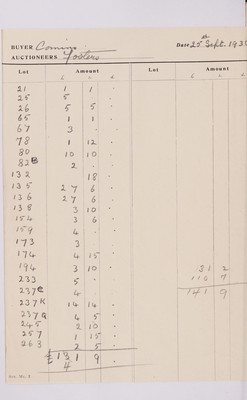 BUYER Comins Date 25th Sept. 193
AUCTIONEERS Fosters
Lot Amount Lot Amount
£ s d £ s d
21 1 1 -
25 5 -
26 5 5 -
65 1 1 -
67 3 -
78 1 12 -
80 10 10 -
82B 2 -
132 18 -
135 27 6 -
136 27 6 -
138 3 10 -
154 3 6 -
159 4 -
173 3
174 4 15 -
194 3 10 - 31 2
233 5 - 110 7
237E 4 - 141 9
237K 14 14 -
237Q 4 5 -
245 2 10 -
257 1 15 -
263 2 5 -
£ 1 1 9 -
4